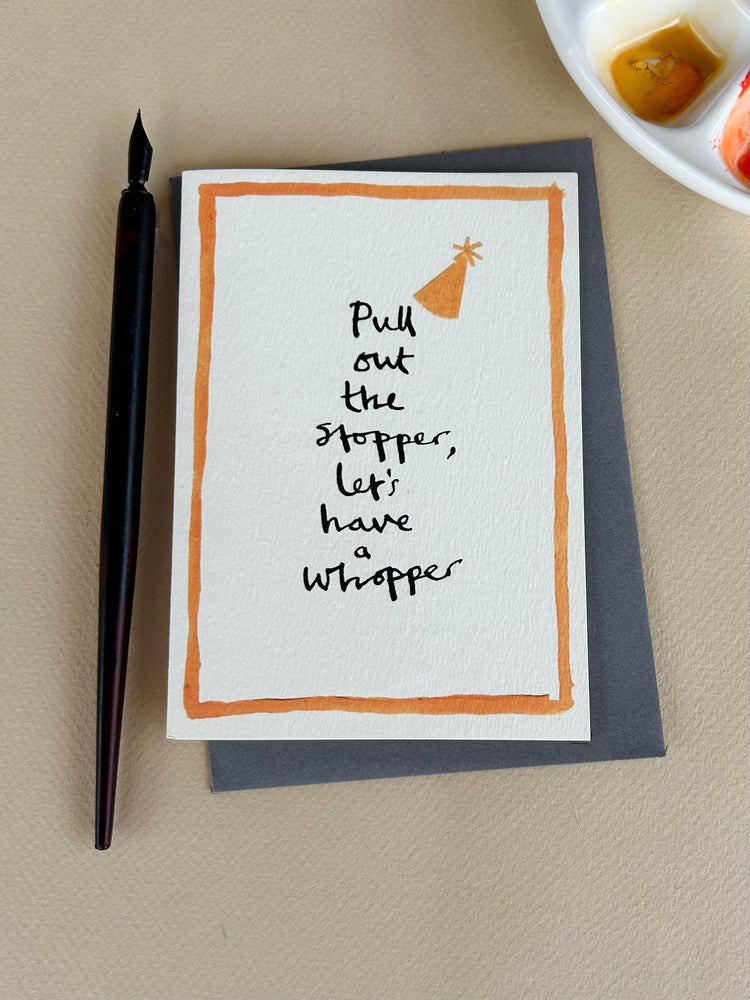 Pull
out
the
stopper,
let's
have
a
whopper